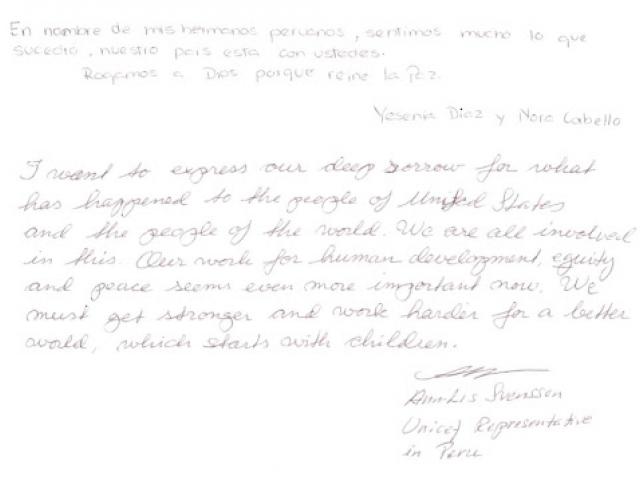 En nombre de mis hermanos peruanos, sentimos mucho lo que
sucedió, nuestro pais esta con ustedes.
Rogamos a Dios porque reine la Paz.
Yesenia Diaz y Nora Cabello
I want to express our deep sorrow for what
has happened to the people of United States
and the people of the world. We are all involved
in this. Our work for human development, equity
and peace seems even more important now. We
must get stronger and work harder for a better
world, which starts with children.
Ann-Lis Svensson
Unicef Representative
in Peru